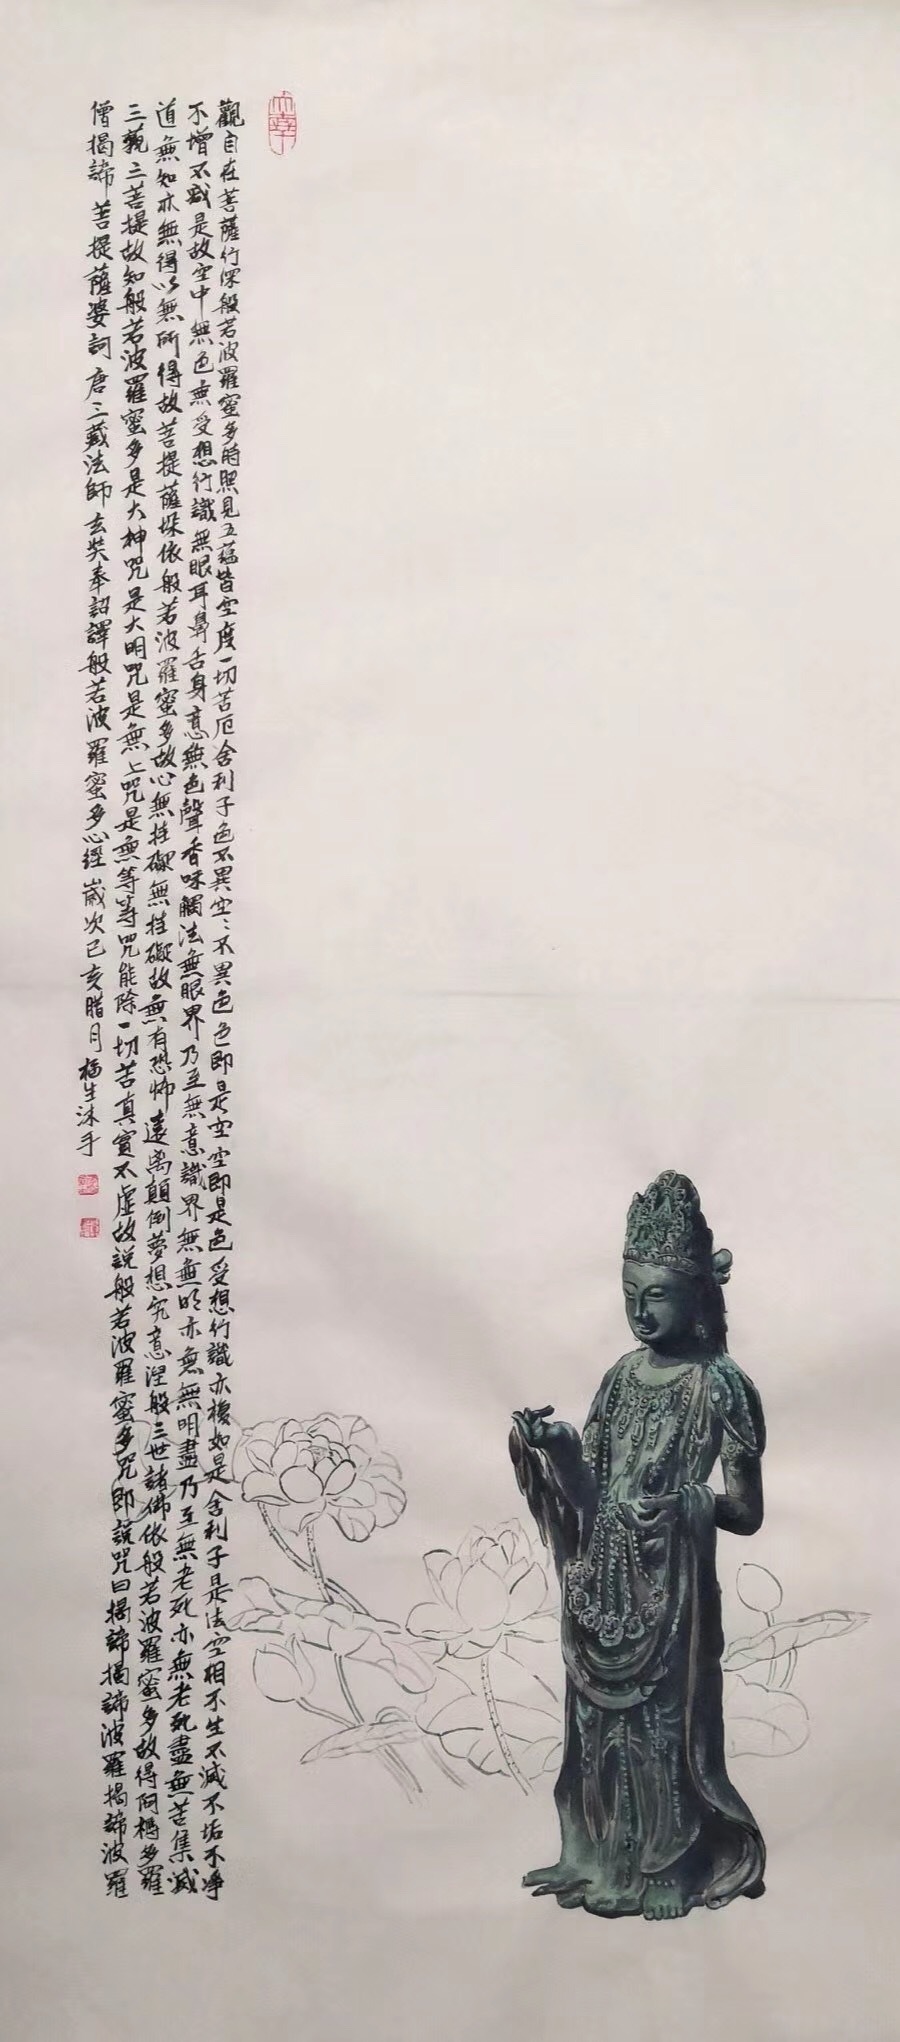 觀自在菩薩行深般若波羅蜜多時照見五蘊皆空度一切苦厄舍利子色不異空〻不異色色即是空空即是色受想行識亦復如是舍利子是法空相不生不滅不垢不淨
不增不減是故空中無色無受想行識無眼耳鼻舌身意無色聲香味觸法無眼界乃至無意識界無無明亦無無明盡乃至無老死亦無老死盡無苦集滅
道無知亦無得以無所得故菩提薩埵依般若波羅蜜多故心無挂礙無挂礙故無有恐怖遠离顛倒夢想究意涅般三世諸佛依般若波羅蜜多故得阿耨多羅
三藐三菩提故知般若波羅蜜多是大神咒是大明咒是無上咒是無等等咒能除一切苦真實不虛故說般若波羅蜜多咒即說咒曰揭諦揭諦波羅揭諦波羅
僧揭諦菩提薩婆訶唐三藏法師玄奘奉詔譯般若波羅蜜多心經歲次己亥腊月福生沐手